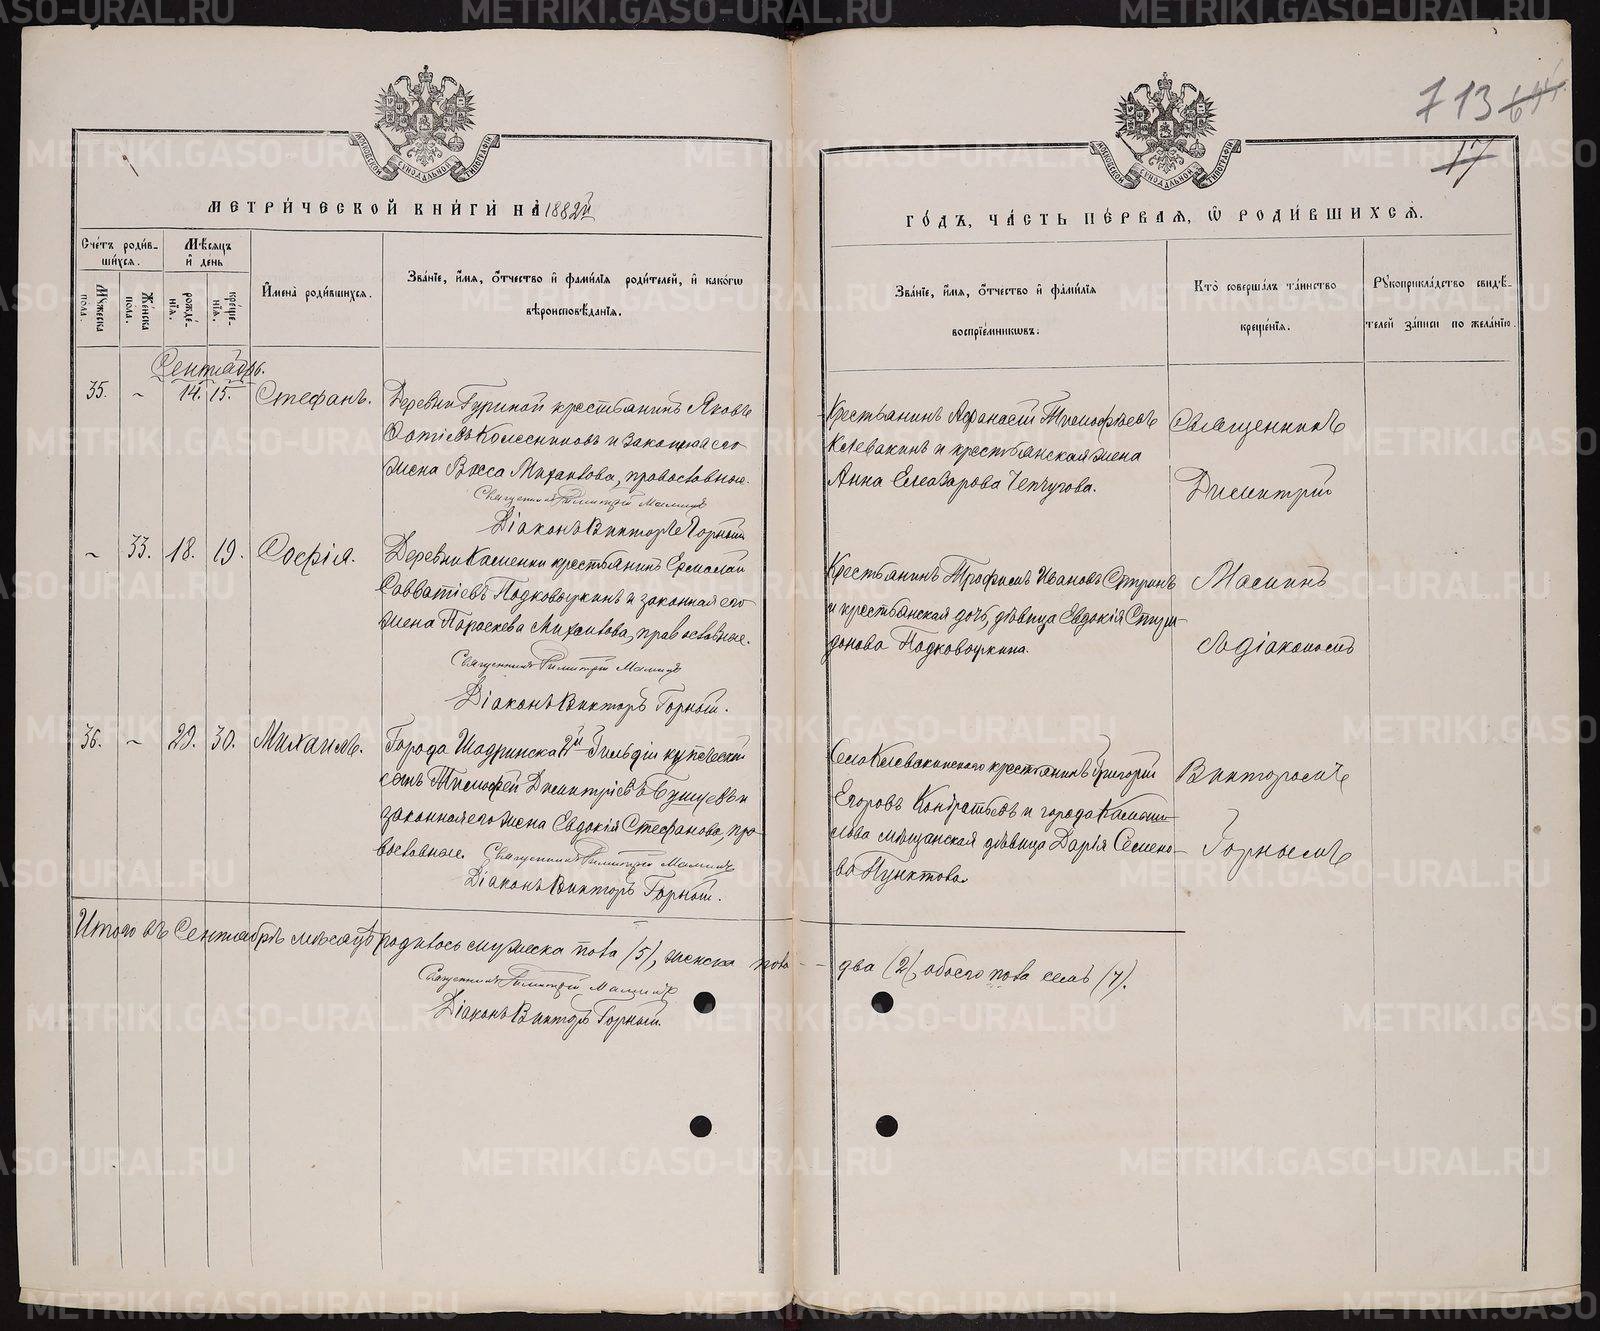 713
17
МОСКОВСКОЙ СѴНОДАЛЬНОЙ ТИПОГРАФІИ
МОСКОВСКОЙ СѴНОДАЛЬНОЙ ТИПОГРАФІИ
МЕТРИ́ЧЕСКОЙ КНИ́ГИ НА̀ 1882й
ГО́ДЪ, ЧА́СТЬ ПЕ́РВАЯ, Ѡ҆ РОДИ́ВШИХСѦ.
Сче́тъ роди́в-
ши́хся.
Мѣ́сяцъ
и҆ день
Мꙋжеска пола.
Же́нска пола.
рожде́-нїя.
креще́-нїя.
И҆мена̀ роди́вшихся.
Зва́нїе, и҆́мя, ѻ҆́тчество и҆ фами́лїя роди́телей, и҆ како́гѡ
вѣроисповѣ́данїя.
Зва́нїе, и҆́мя, ѻ҆́тчество и҆ фами́лїя
воспрїе́мникѡвъ.
Кто̀ соверша́лъ та́инство
креще́нїя.
Рꙋкоприкла́дство свидѣ́-
телей за́писи по жела́нїю.
Сентябрь.
35. - 14. 15. Стефанъ.
Деревни Гуриной крестьянинъ Яковъ
Фотіевъ Колесниковъ и законная его
жена Васса Михаилова, православные.
Священникъ Димитрій Маминъ
Діаконъ Викторъ Горный
Крестьянинъ Афанасій Тимофѣевъ
Клевакинъ и крестьянская жена
Анна Елеазарова Чепчугова.
Священникъ
Димитрій
- 33. 18. 19. Софія.
Деревни Каменки крестьянинъ Ермолай
Савватіевъ Подковыркинъ и законная его
жена Параскева Михаилова, православные.
Священникъ Димитрій Маминъ
Діаконъ Викторъ Горный.
Крестьянинъ Трофимъ Ивановъ
и крестьянская дочь, дѣвица Евдокія Спири-
донова Подковыркина.
Маминъ
Содіакономъ
36. - 29. 30. Михаилъ.
Города Шадринска 2й Гильдіи купеческій
сынъ Тимофей Димитріевъ и
законная его жена Евдокія Стефанова, пра-
вославные. Священникъ Димитрій Маминъ
Діаконъ Викторъ Горный.
Села Клевакинского крестьянинъ Григорій
Егоровъ Кондратьевъ и города Камыш-
лова мѣщанская дѣвица Дарія Семено-
ва Пунктова.
Викторомъ
Горнымъ
Итого въ Сентябрѣ мѣсяцѣ родилось мужеска пола (5), женска пола - два (2), обоего пола семь (7).
Священникъ Димитрій Маминъ
Діаконъ Викторъ Горный.
METRIKI.GASO-URAL.RU